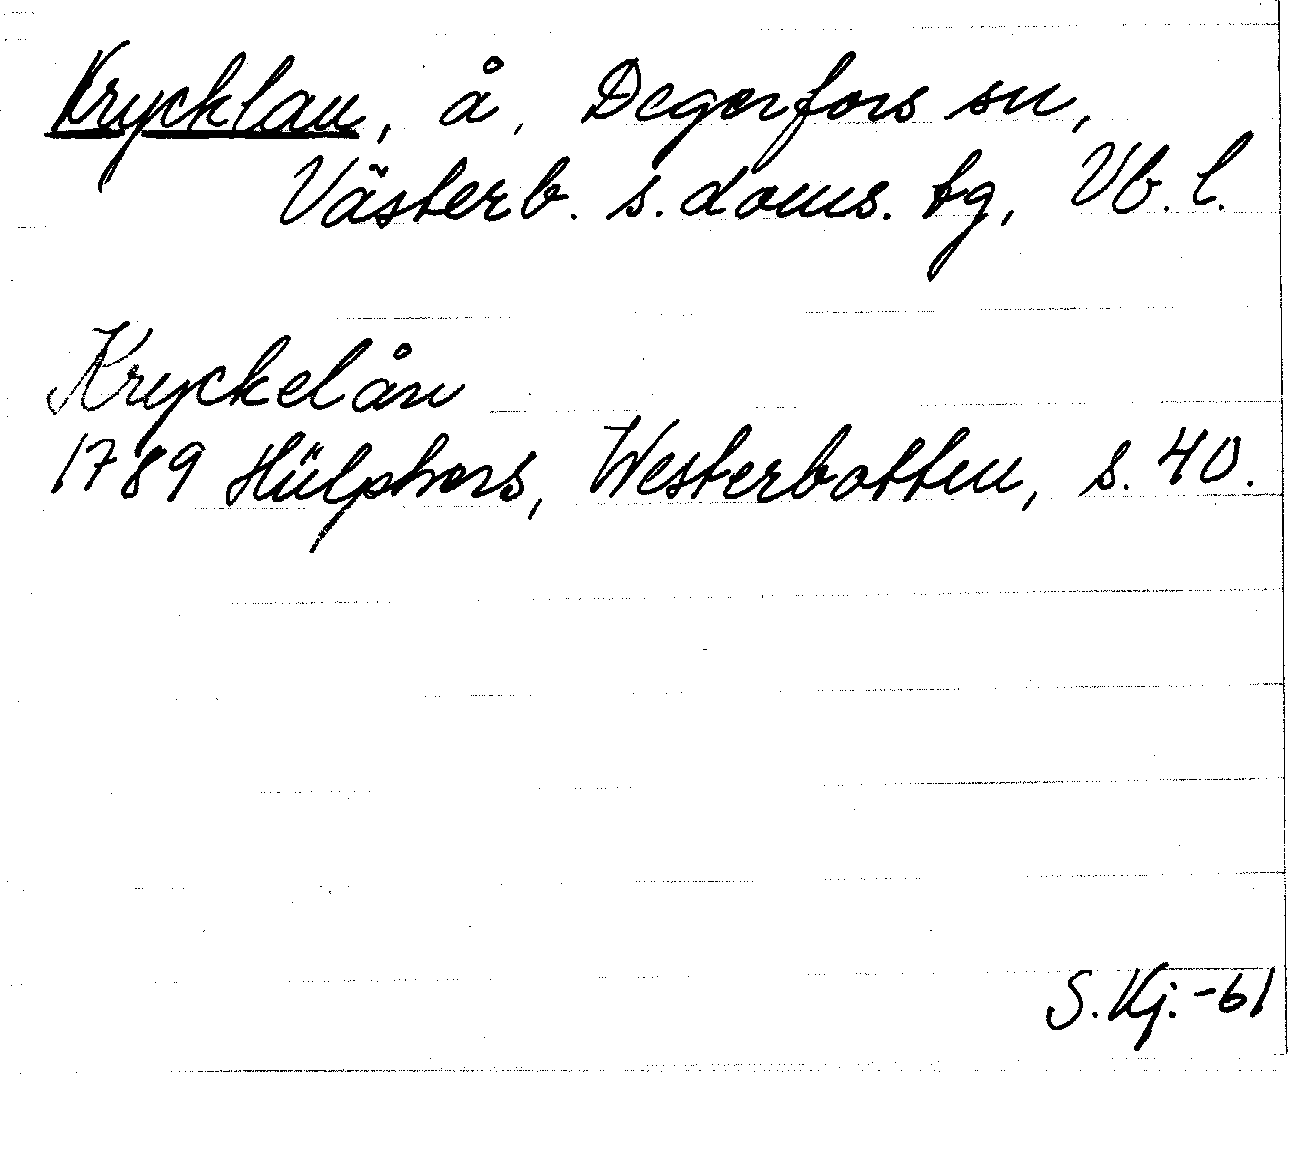 Krycklan, å, Degerfors sn,
Västerb. s. doms. tg, Vb. l.
Kryckelån
1789 Hülphers, Westerbotten, s. 40.
S. Kj. -61